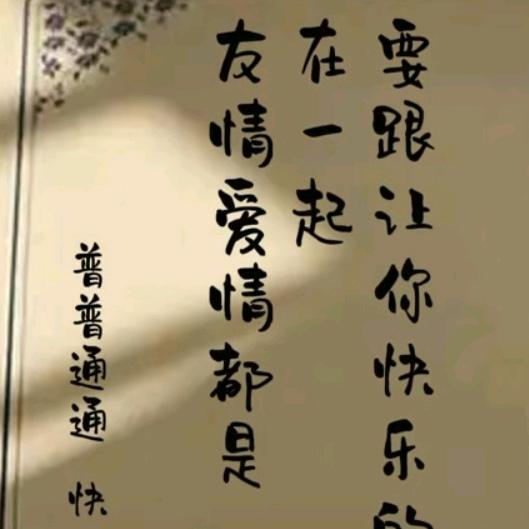 要跟让你快乐的
在一起
友情爱情都是
普普通通 快